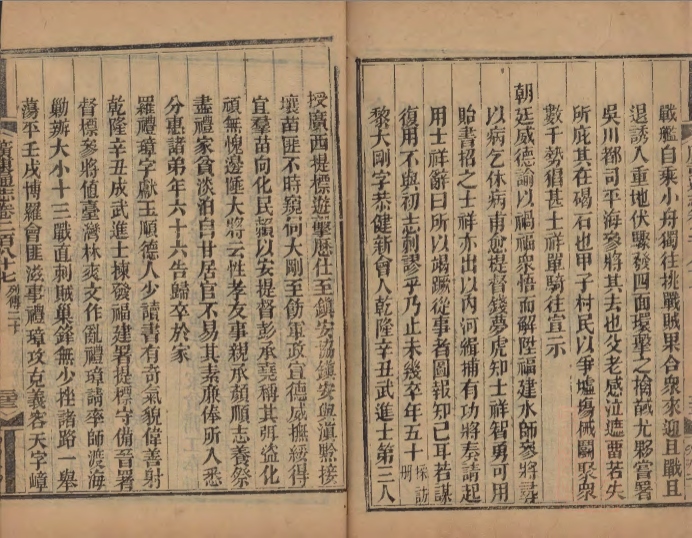 戰艦自乘小舟獨往挑戰賊果合衆來迎且戰且
退誘入重地伏驟發四面環擊之擒馘尤夥嘗署
吳川都司平海參將其去也父老感泣遮留若失
所庇其在碣石也甲子村民以爭墟塲械鬭聚衆
數千勢猖甚士祥單騎往宣示
朝廷威德諭以禍福衆悟而解陞福建水師參將尋
以病乞休病甫愈提督錢夢虎知士祥智勇可用
貽書招之士祥亦出以內河緝捕有功將奏請起
用士祥辭曰所以竭蹶從事者圖報知己耳若謀
復用不與初志刺謬乎乃止未幾卒年五十採訪冊
黎大剛字恭健新會人乾隆辛丑武進士第三人
授廣西提標遊擊歷仕至鎮安協鎮安與滇黔接
壤苗匪不時窺伺大剛至飭軍政宣德威撫綏得
宜羣苗向化民賴以安提督彭承堯稱其弭盜化
頑無愧邊匪大將云性孝友事親承顏順志養祭
盡禮家貧淡泊自甘居官不易其素廉俸所入悉
分惠諸弟年六十六告歸卒於家
羅禮璋字獻玉順德人少讀書有奇氣貌偉善射
乾隆辛丑成武進士揀發福建署提標守備晉署
督標參將値臺灣林爽文作亂禮璋請率師渡海
勦辦大小十三戰直刺賊巢鋒無少挫諸路一舉
蕩平壬戌博羅會匪滋事禮璋攻克義客天字嶂
卷二百八十七
列傳二十